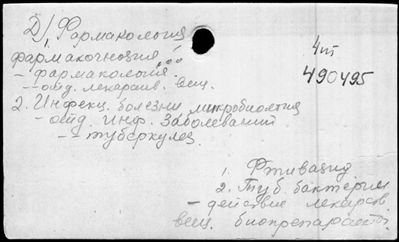 Д/1. Фармакология
фармакогнозия
- фармакология.
- - отд. лекарств. вещ.
4т
490495
2. Инфекц. болезни микробиология
- отд. инф. заболеваний
- - туберкулез
1. Фтивазид
2. Туб. бактерии
- действие лекарств
вещ. биопрепараты.